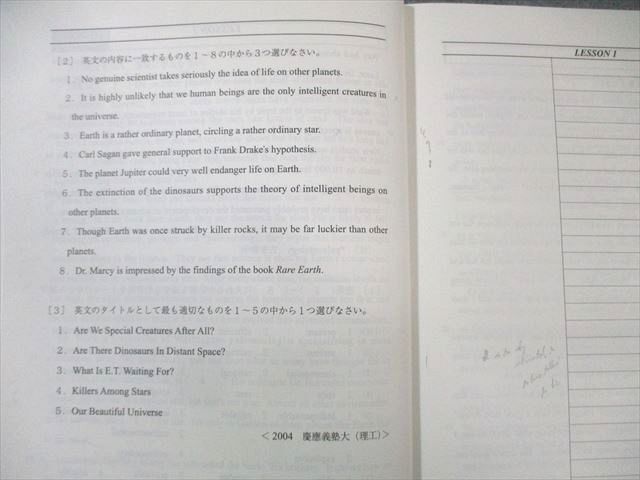 LESSON 1
[2] 英文の内容に一致するものを1〜8の中から3つ選びなさい。
1. No genuine scientist takes seriously the idea of life on other planets.
2. It is highly unlikely that we human beings are the only intelligent creatures in
the universe.
3. Earth is a rather ordinary planet, circling a rather ordinary star.
4. Carl Sagan gave general support to Frank Drake's hypothesis.
5. The planet Jupiter could very well endanger life on Earth.
6. The extinction of the dinosaurs supports the theory of intelligent beings on
other planets.
7. Though Earth was once struck by killer rocks, it may be far luckier than other
planets.
8. Dr. Marcy is impressed by the findings of the book Rare Earth.
[3] 英文のタイトルとして最も適切なものを1〜5の中から1つ選びなさい。
1. Are We Special Creatures After All?
2. Are There Dinosaurs In Distant Space?
3. What Is E.T. Waiting For?
4. Killers Among Stars
5. Our Beautiful Universe
<2004 慶應義塾大(理工)>